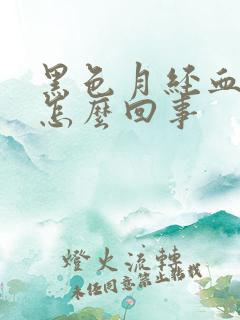 黑色月經血
怎麼回事
燈火流轉
未经同意禁止转载